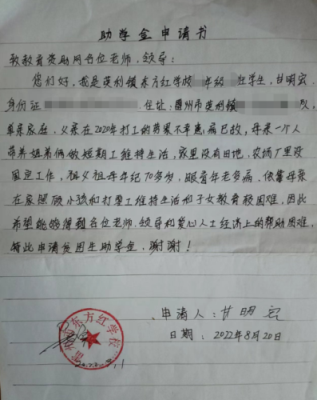 助学金申请书
敬教育资助网各位老师，领导：
您们好，我是英利镇东方红学校 年级 班学生，甘明宏，
身份证 住址：雷州市英利镇 队，
单亲家庭，父亲在2020年打工的时候不幸患病已故，母亲一个人
带养姐弟俩做短期工维持生活，家里没有田地，农场厂里没
固定工作，祖父祖母年纪70多岁，眼睛年老多病，依靠母亲
在家照顾小孩们打零工维持生活和子女教育很困难，因此
希望能够得到各位老师，领导和爱心人士经济上的帮助困难，
特此申请贫困生助学金，谢谢！
申请人：甘明宏
日期：2022年8月20日
东方红学校